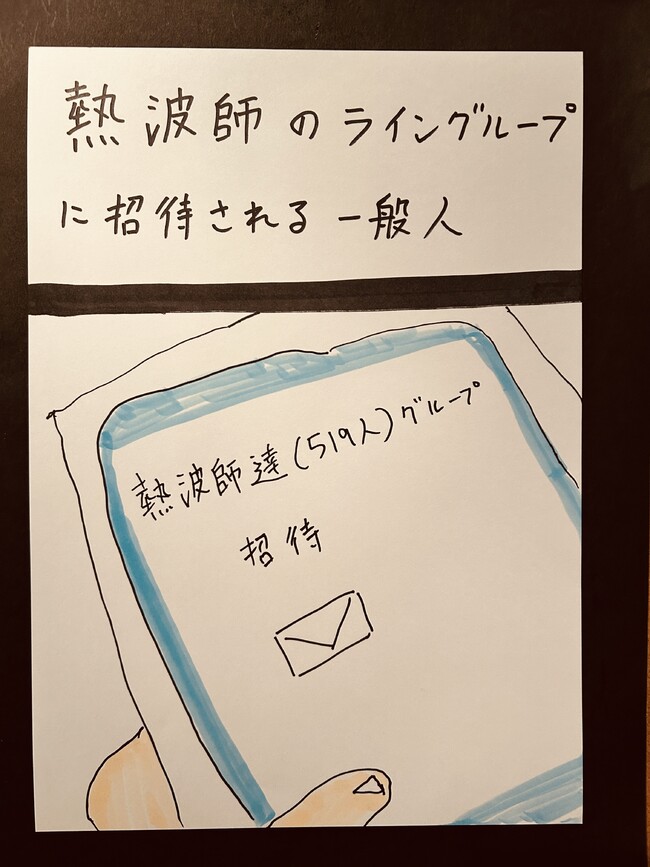 熱波師のライングループ
に招待される一般人
熱波師達(519人)グループ
招待